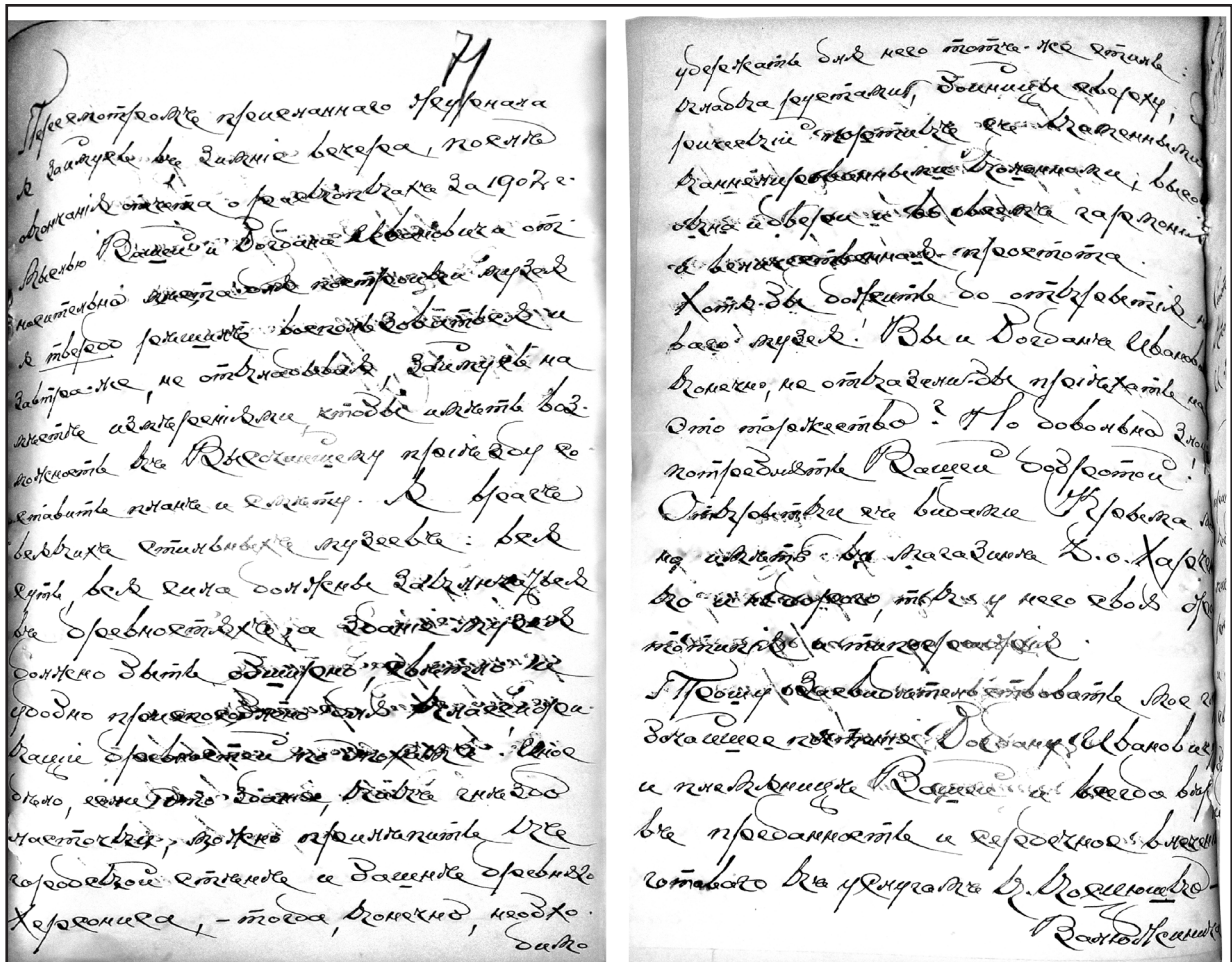 71
Пересмотромъ присланнаго журнала
я займусь въ зимніе вечера, послѣ
окончанія отчета о раскопкахъ за 1907 г.
Мыслью Вашей и Богдана Ивановича от-
носительно мѣста для постройки музея
я твердо рѣшилъ воспользоваться и
завтра-же, не откладывая, займусь на
мѣстѣ измѣреніями, чтобы имѣть воз-
можность къ Высочайшему пріѣзду со-
ставить планъ и смѣту. Я врагъ
всякихъ стильныхъ музеевъ: вся
суть, вся сила должны заключаться
въ древностяхъ, а зданіе музея
должно быть обширно, свѣтло и
удобно приспособлено для классифи-
каціи древностей по эпохамъ! Иное
дѣло, если это зданіе, какъ гнѣздо
ласточки, можно прилѣпить къ
городской стѣнѣ и башнѣ древняго
Херсониса, - тогда, конечно, необхо-
димо
удержать для него тотъ-же стиль:
кладка рустами, бойницы сверху,
портикъ съ каменными
каннелированными колоннами,
окна и двери и во всемъ гармонія
и величественная простота.
Хотя-бы дожить до открытія
ваго музея! Вы и Богданъ Иванов
конечно, не отказались-бы пріѣхать на
это торжество? Но довольно
потреблять Вашей добротой!
Открытки съ видами Крыма
но имѣть въ магазинѣ Д.о. Харч
ко и недорого, т.к. у него своя
тотипія и типографія.
Прошу засвидѣтельствовать мое
бочайшее почтеніе Богдану Иванович
и племянницѣ Вашей и всегда
въ преданность и сердечное влечен
готоваго къ услугамъ К. Косцюшко-
Валюжинича